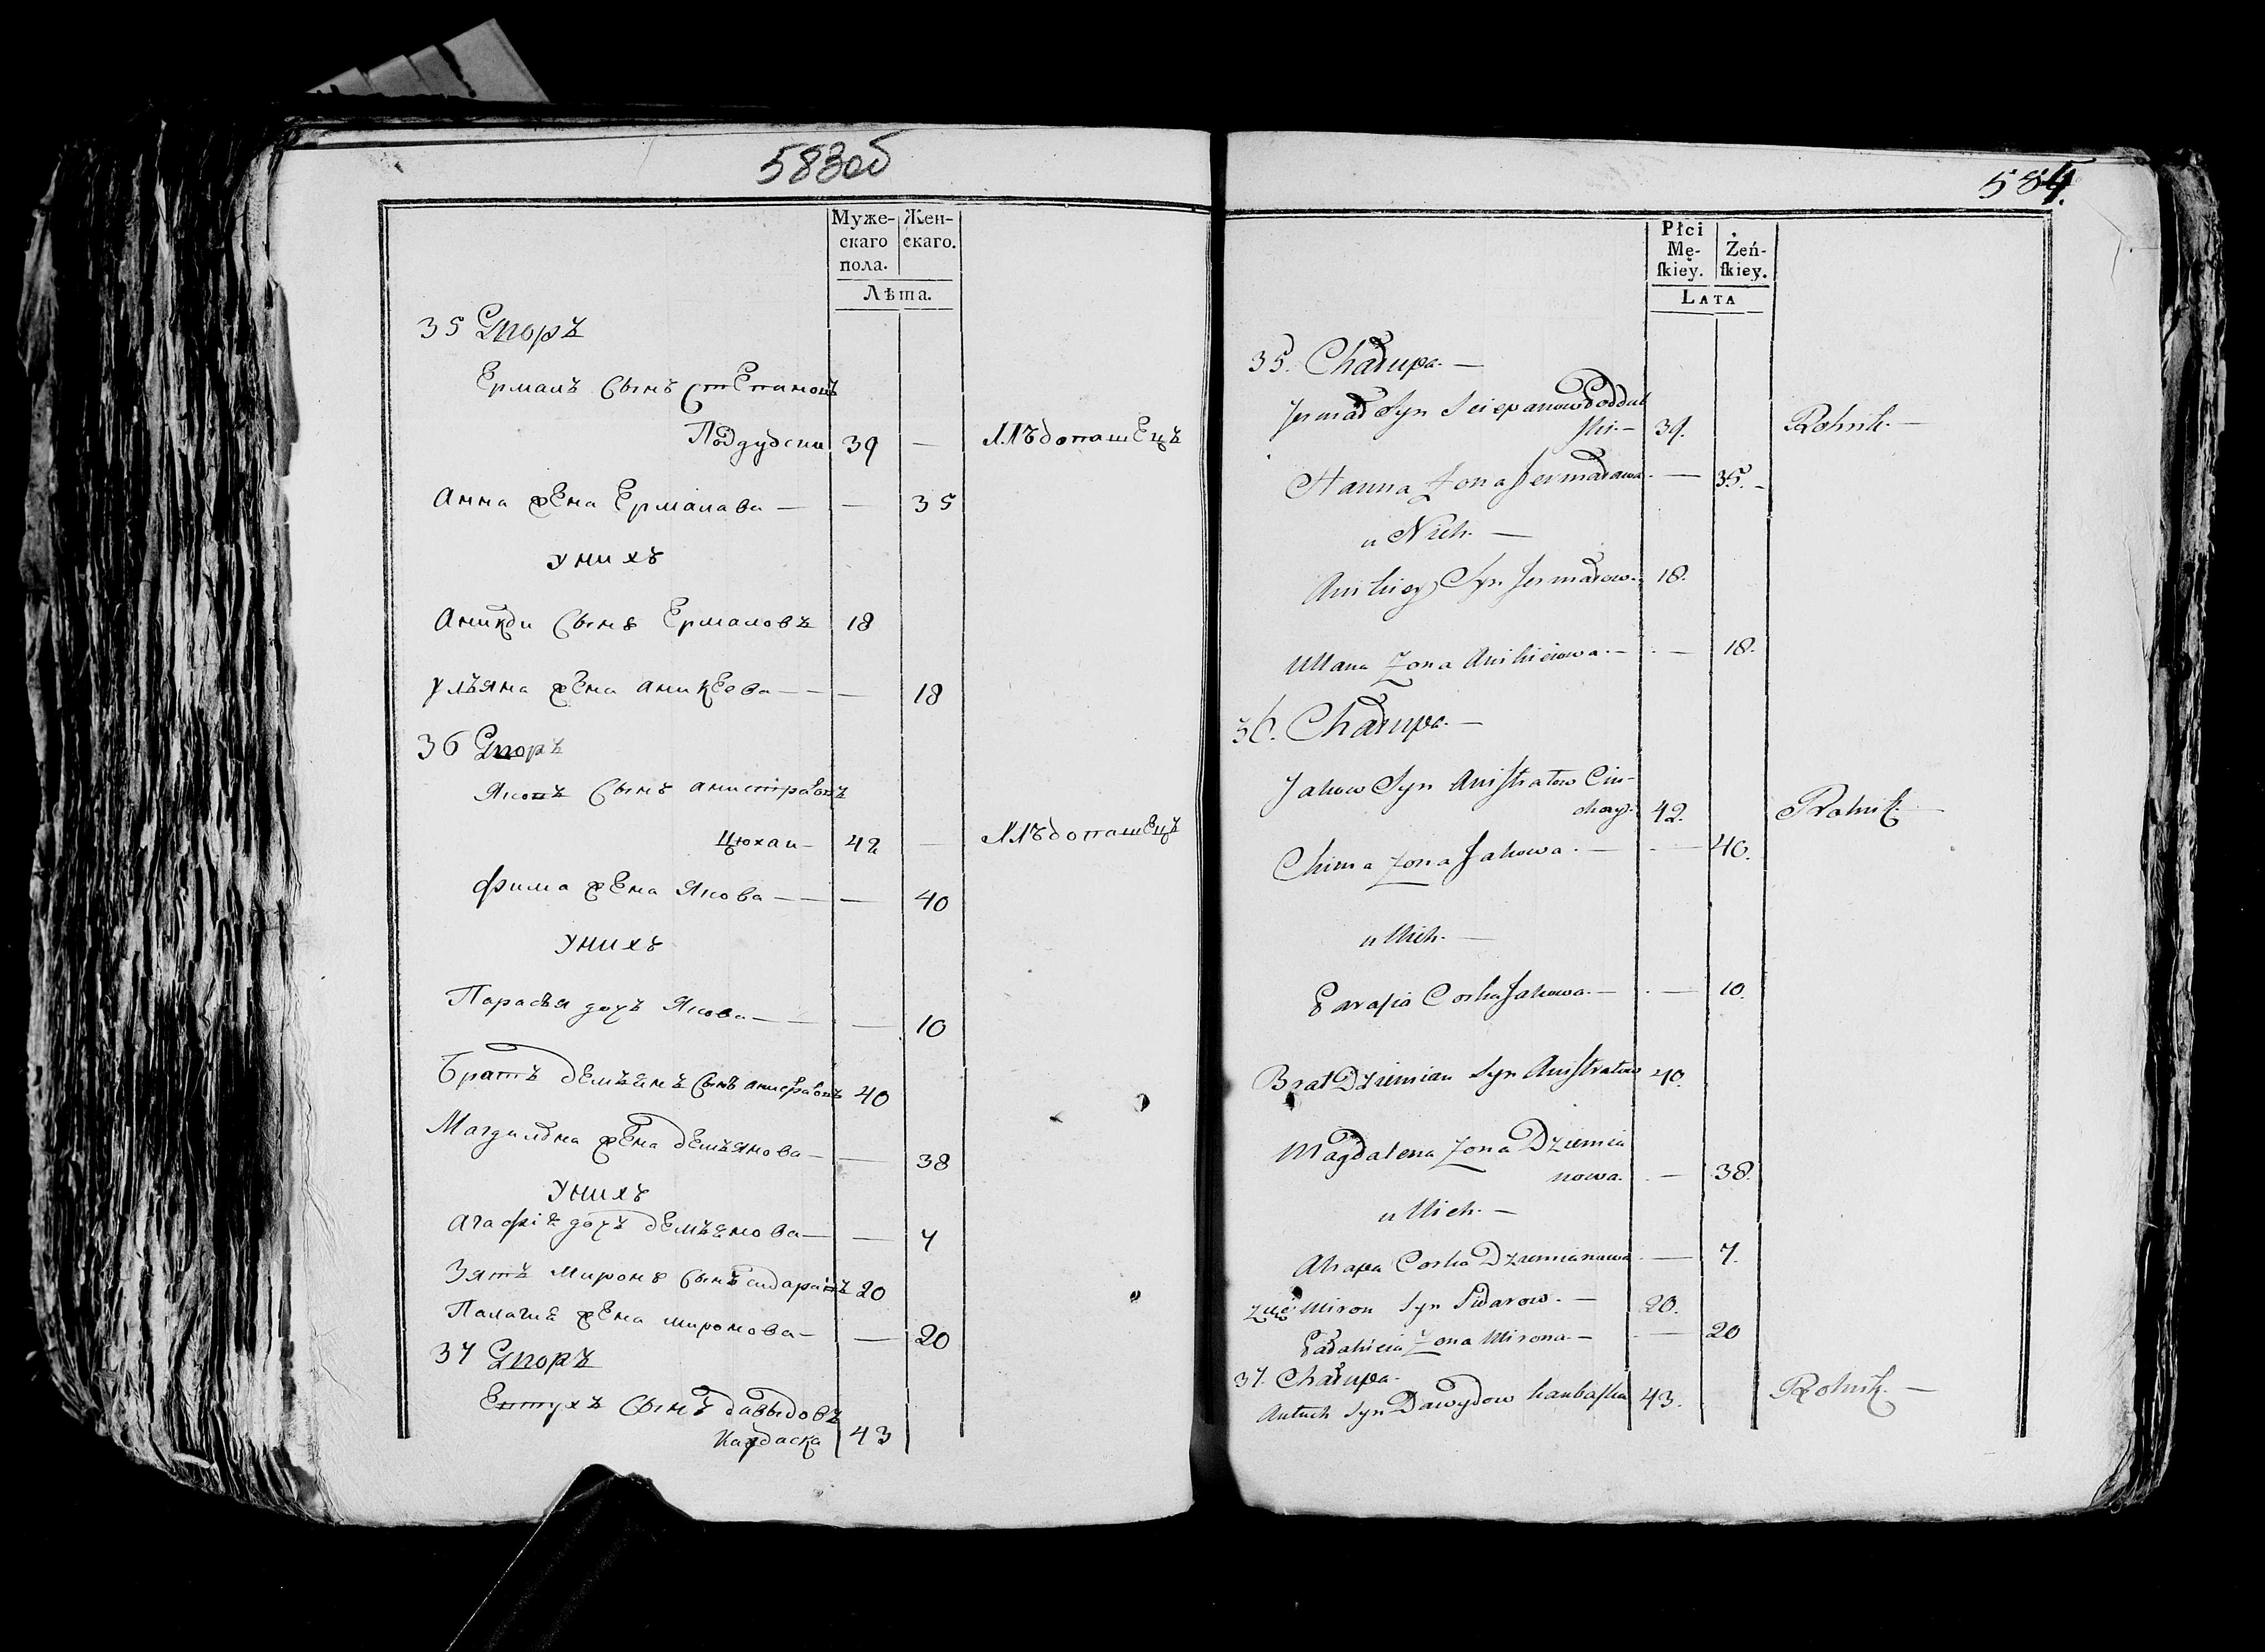 583об
Муже-
скаго
пола.
Жен-
скаго.
Лѣта.
35 Дворъ
Ермалъ Сынъ Степановъ
Поддубски 39 —
Хлѣбопашецъ
Анна жена Ермалава — — 35
У нихъ
Аникѣи Сынъ Ермаловъ 18
Ульяна жена аникеева — — — 18
36 Дворъ
Яковъ Сынъ анистратовъ
Цюхаи — 42 —
Хлѣбопашецъ
фима жена Якова — — — 40
У нихъ
Парасья дочъ Якова — — — 10
Братъ демьянъ Сынъ анистратовъ 40
Магдалѣна жена демъянова — — 38
У нихъ
агафія дочъ демъянова — — 7
Зять миронъ Сынъ сидаравъ 20
Палагия жена миронова — — 20
37 Дворъ
Сынъ давыдовъ
43
584.
Płci
Mę-
ſkiey.
Żeń-
ſkiey.
LATA
35. Chałupa. —
Jermał Syn Sciepanow Poddub
ſki. — 39.
Rolnik. —
Hanna Zona Jermałowa. — 35. -
u Nich. —
Anikiey Syn Jermałow. 18.
Ullana Zona Anikieiowa. — — 18.
36. Chałupa. —
Jakow Syn Aniſtratow Ciu-
chay. 42.
Rolnik. —
Chima Zona Jakowa. — — 40.
u Nich. —
Parasia Corka Jakowa. — — 10.
Brat Dziemian Syn Aniſtratow 40.
Magdalena Zona Dziemia
nowa. — 38.
u Nich. —
Ahapa Corka Dziemianowa — 7.
Zięć Miron Syn Sidarow. — 20.
Pałahieia Zona Mirona. — — 20
37. Chałupa.
Autuch Syn Dawydow 43.
Rolnik. —